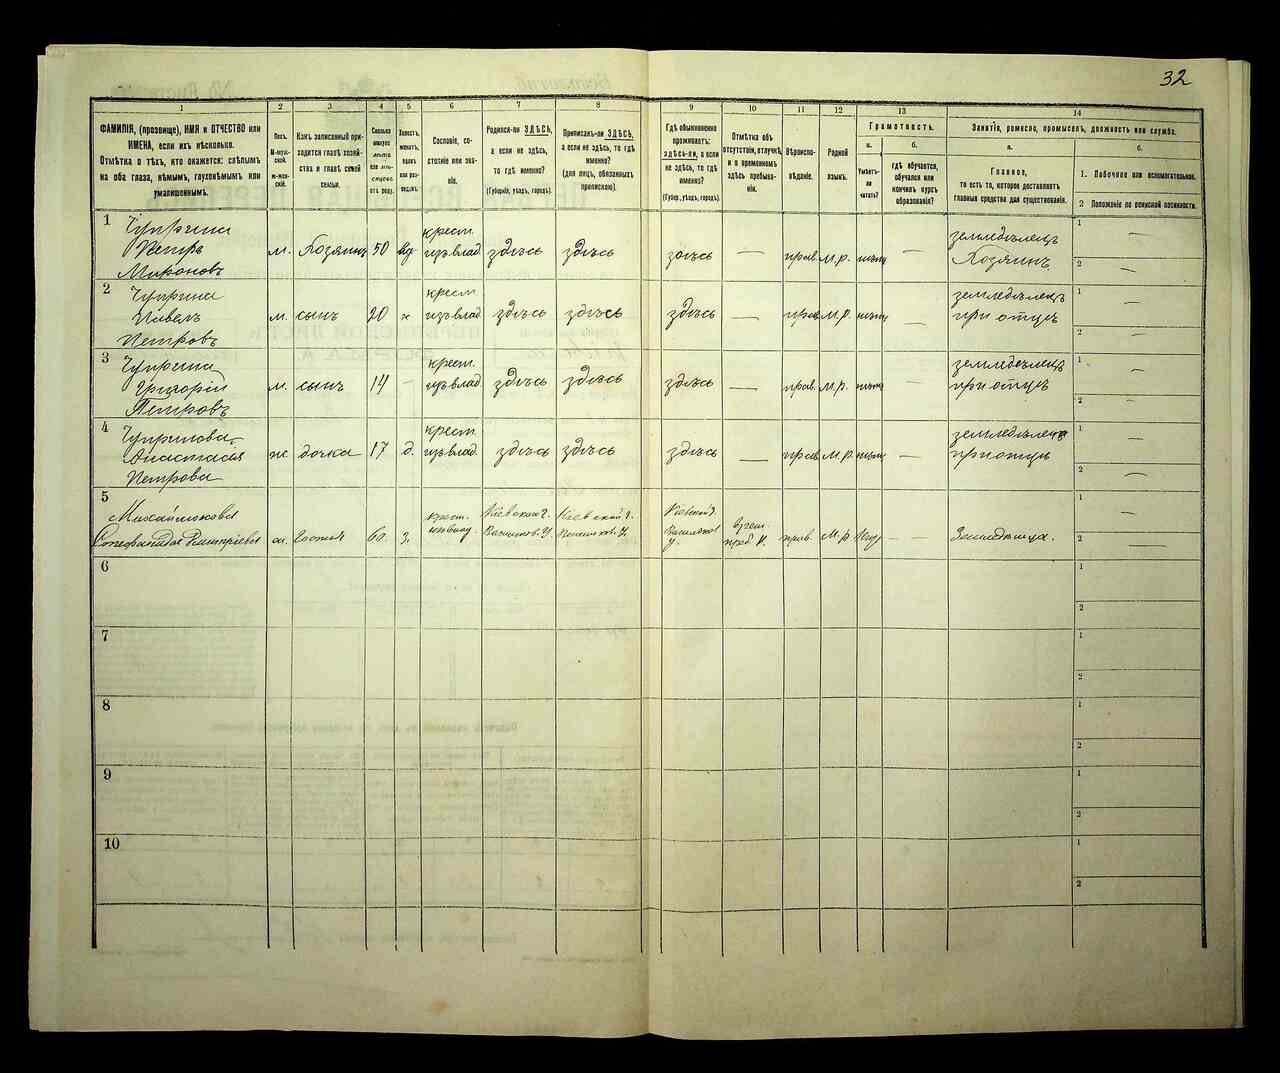 32
1
2
3
4
5
6
7
8
9
10
11
12
13
14
ФАМИЛІЯ, (прозвище), ИМЯ и ОТЧЕСТВО или
ИМЕНА, если ихъ нѣсколько.
Отмѣтка о тѣхъ, кто окажется: слѣпымъ
на оба глаза, нѣмымъ, глухонѣмымъ или
умалишеннымъ.
Полъ.
М-муж-
ской.
ж-жен-
скій.
Какъ записанный при-
ходится главѣ хозяй-
ства и главѣ своей
семьи.
Сколько
минуло
лѣтъ
или мѣ-
сяцевъ
отъ роду.
Холостъ,
женатъ,
вдовъ
или раз-
веденъ.
Сословіе, со-
стояніе или зва-
ніе.
Родился-ли ЗДѢСЬ,
а если не здѣсь,
то гдѣ именно?
(Губернія, уѣздъ, городъ).
Приписанъ-ли ЗДѢСЬ,
а если не здѣсь, то гдѣ
именно?
(для лицъ, обязанныхъ
припискою).
Гдѣ обыкновенно
проживаетъ:
здѣсь-ли, а если
не здѣсь, то гдѣ
именно?
(Губер., уѣздъ, городъ).
Отмѣтка объ
отсутствіи, отлучкѣ
и о временномъ
здѣсь пребыва-
ніи.
Вѣроиспо-
вѣданіе.
Родной
языкъ.
Грамотность.
а.
Умѣетъ-
ли
читать?
б.
гдѣ обучается,
обучался или
кончилъ курсъ
образованія?
Занятія, ремесло, промыселъ, должность или служба.
а.
Главное,
то есть то, которое доставляетъ
главныя средства для существованія.
б.
1. Побочное или вспомогательное.
2 Положеніе по воинской повинности.
1
Чуприна
Петръ
Мироновъ
м. Хозяинъ 50 вд крест. изъ влад здѣсь здѣсь здѣсь — прав. М.р. — земледѣлецъ
Хозяинъ
1 —
2 —
2
Чуприна
Павелъ
Петровъ
м. сынъ 20 х крест. изъ влад здѣсь здѣсь здѣсь — прав. М.р. — земледѣлецъ
при отцѣ
1 —
2 —
3
Чуприна
Григорій
Петровъ
м. сынъ 14 - крест. изъ влад здѣсь здѣсь здѣсь — прав. М.р. — земледѣлецъ
при отцѣ
1 —
2 —
4
Чупринова
Анастасія
Петрова
ж дочка 17 д. крест. изъ влад. здѣсь здѣсь здѣсь — прав. М.р. — земледѣлецъ
при отцѣ
1 —
2 —
5
60 Кіевской г. Васильков. У. Кіевской г. Васильков. У. прав. М.р. — —
1 —
2 —
6
1
2
7
1
2
8
1
2
9
1
2
10
1
2